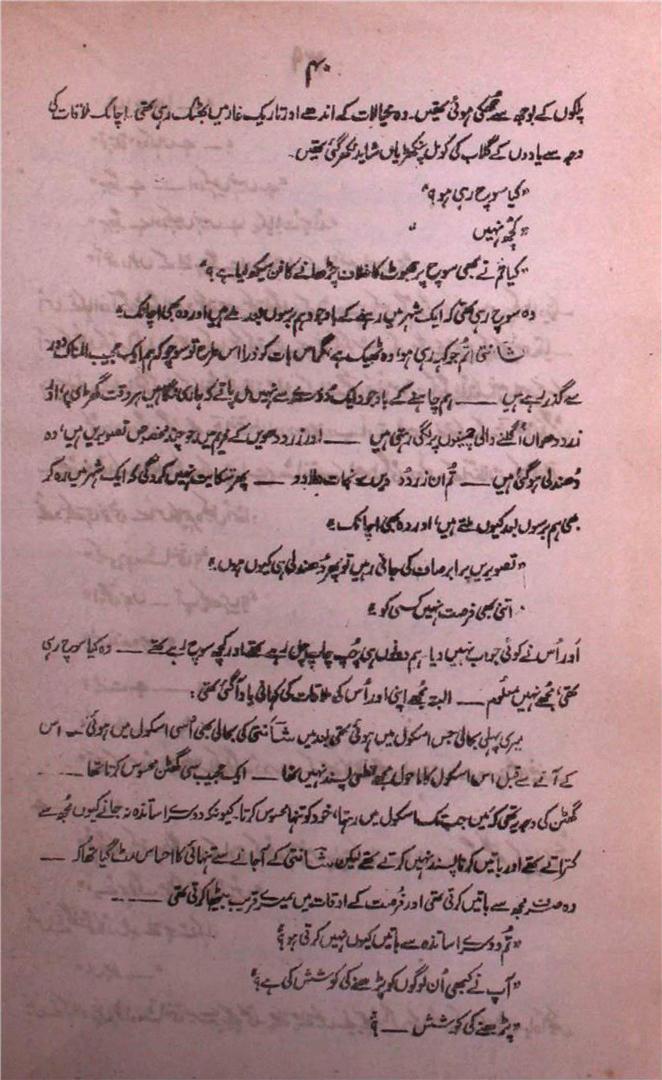 ۴۰
پلکوں کے بوجھ سے جھکی ہوئی تھیں۔ وہ خیالات کے اندھے اور تاریک غار میں بھٹک رہی تھی۔ اچانک ملاقات کی
وجہ سے یادوں کے گلاب کی کومل پنکھڑیاں شاید بکھر گئی تھیں۔
”کیا سوچ رہی ہو؟“
”کچھ نہیں“
”کیا تم نے بھی سوچ پر جھوٹ کا غلاف چڑھانے کا فن سیکھ لیا ہے؟“
وہ سوچ رہی تھی کہ ایک شہر میں رہنے کے باوجود ہم برسوں بعد ملے ہیں اور وہ بھی اچانک۔
شانتی! تم جو کہہ رہی ہو، وہ ٹھیک ہے، مگر اس بات کو ذرا اس طرح تو سوچو کہ ہم ایک عجیب المناک دور
سے گذر رہے ہیں ـــــ ہم چاہنے کے باوجود ایک دوسرے سے نہیں مل پاتے کہ ہماری نگاہیں ہر وقت گھڑی پر، اور
زرد دھواں اُگلنے والی چمنیوں پر ٹکی رہتی ہیں ـــــ اور زرد دھوئیں کے میں جو چند تصویریں ہیں، وہ
دُھندلی ہو گئی ہیں ـــــ تم ان زرد سے نجات دلا دو ـــــ پھر شکایت نہیں کرو گی کہ ایک شہر میں رہ کر
بھی ہم برسوں بعد کیوں ملتے ہیں، اور وہ بھی اچانک۔
”تصویریں برابر صاف کی جاتی رہیں تو پھر دُھندلی ہی کیوں ہوں۔“
”اتنی بھی فرصت نہیں کسی کو۔“
اور اُس نے کوئی جواب نہیں دیا۔ ہم دونوں ہی چپ چاپ چل رہے تھے اور کچھ سوچ رہے تھے ـــــ وہ کیا سوچ رہی
تھی، مجھے نہیں معلوم ـــــ البتہ مجھے اپنی اور اُس کی ملاقات کی کہانی یاد آ گئی تھی:
میری پہلی بحالی جس اسکول میں ہوئی تھی بعد میں شانتی کی بحالی بھی اُسی اسکول میں ہوئی ـــ اس
کے آنے سے قبل اس اسکول کا ماحول مجھے قطعی پسند نہیں تھا ـــــ ایک عجیب سی گھٹن محسوس کرتا تھا ـــــ
گھٹن کی وجہ یہ تھی کہ میں جب تک اسکول میں رہتا، خود کو تنہا محسوس کرتا۔ کیونکہ دوسرے اساتذہ نہ جانے کیوں مجھ سے
کتراتے تھے اور باتیں کرنا پسند نہیں کرتے تھے لیکن شانتی کے آ جانے سے تنہائی کا احساس مٹ گیا تھا کہ ـــــ
وہ صرف مجھ سے باتیں کرتی تھی اور فرصت کے اوقات میں میرے قریب بیٹھا کرتی تھی ـــــ
”تم دوسرے اساتذہ سے باتیں کیوں نہیں کرتی ہو؟“
”آپ نے کبھی اُن لوگوں کو پڑھنے کی کوشش کی ہے؟“
”پڑھنے کی کوشش ـــــ؟“